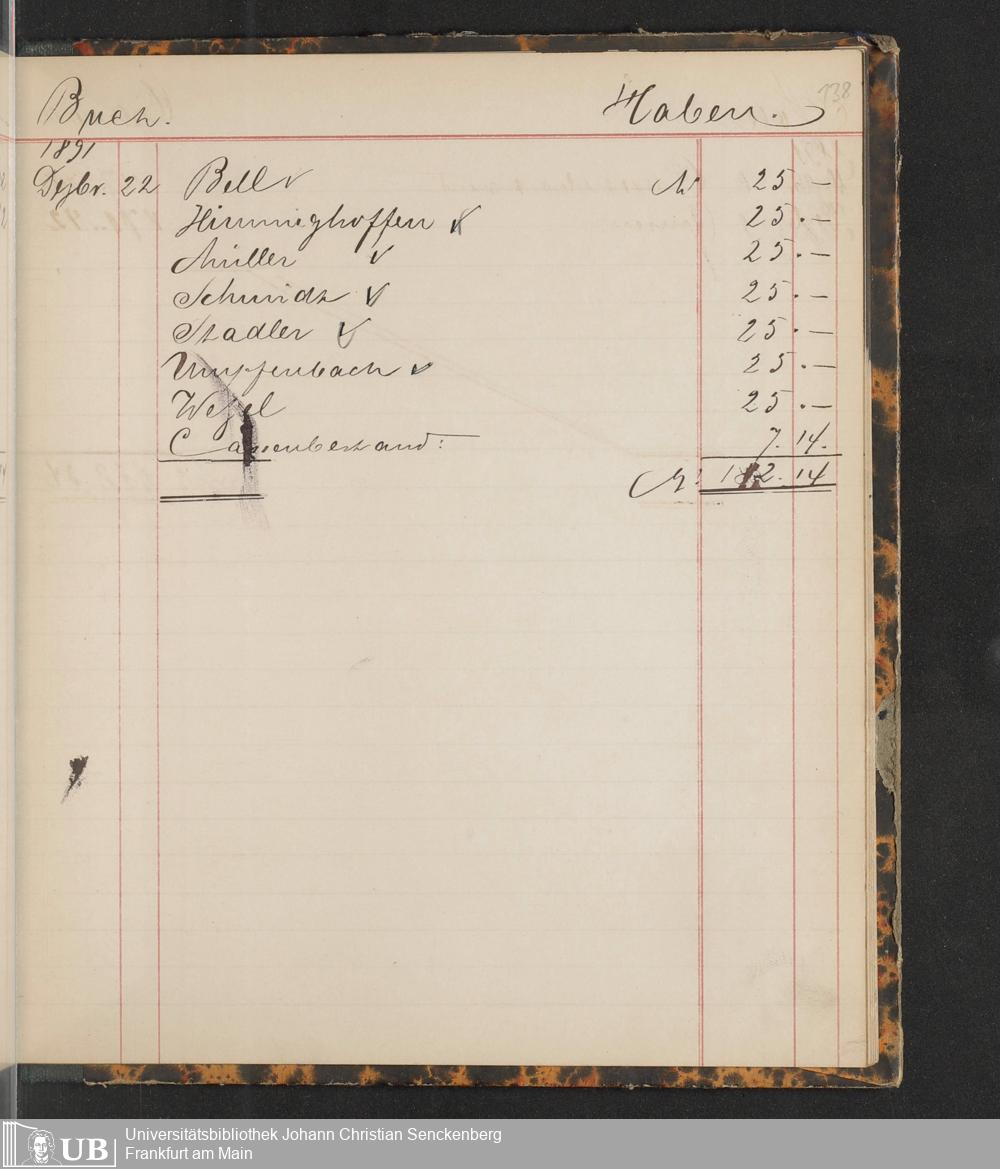 138
Buch. Haben.
1891
Dezbr. 22 Bell M 25 —
Himmighoffen 25.—
Müller 25.—
Schmidt 25.—
Stadler 25.—
Umpfenbach 25.—
Wetzel 25.—
Cassenbestand: 7.14.
M. 182.14
UB
Universitätsbibliothek Johann Christian Senckenberg
Frankfurt am Main